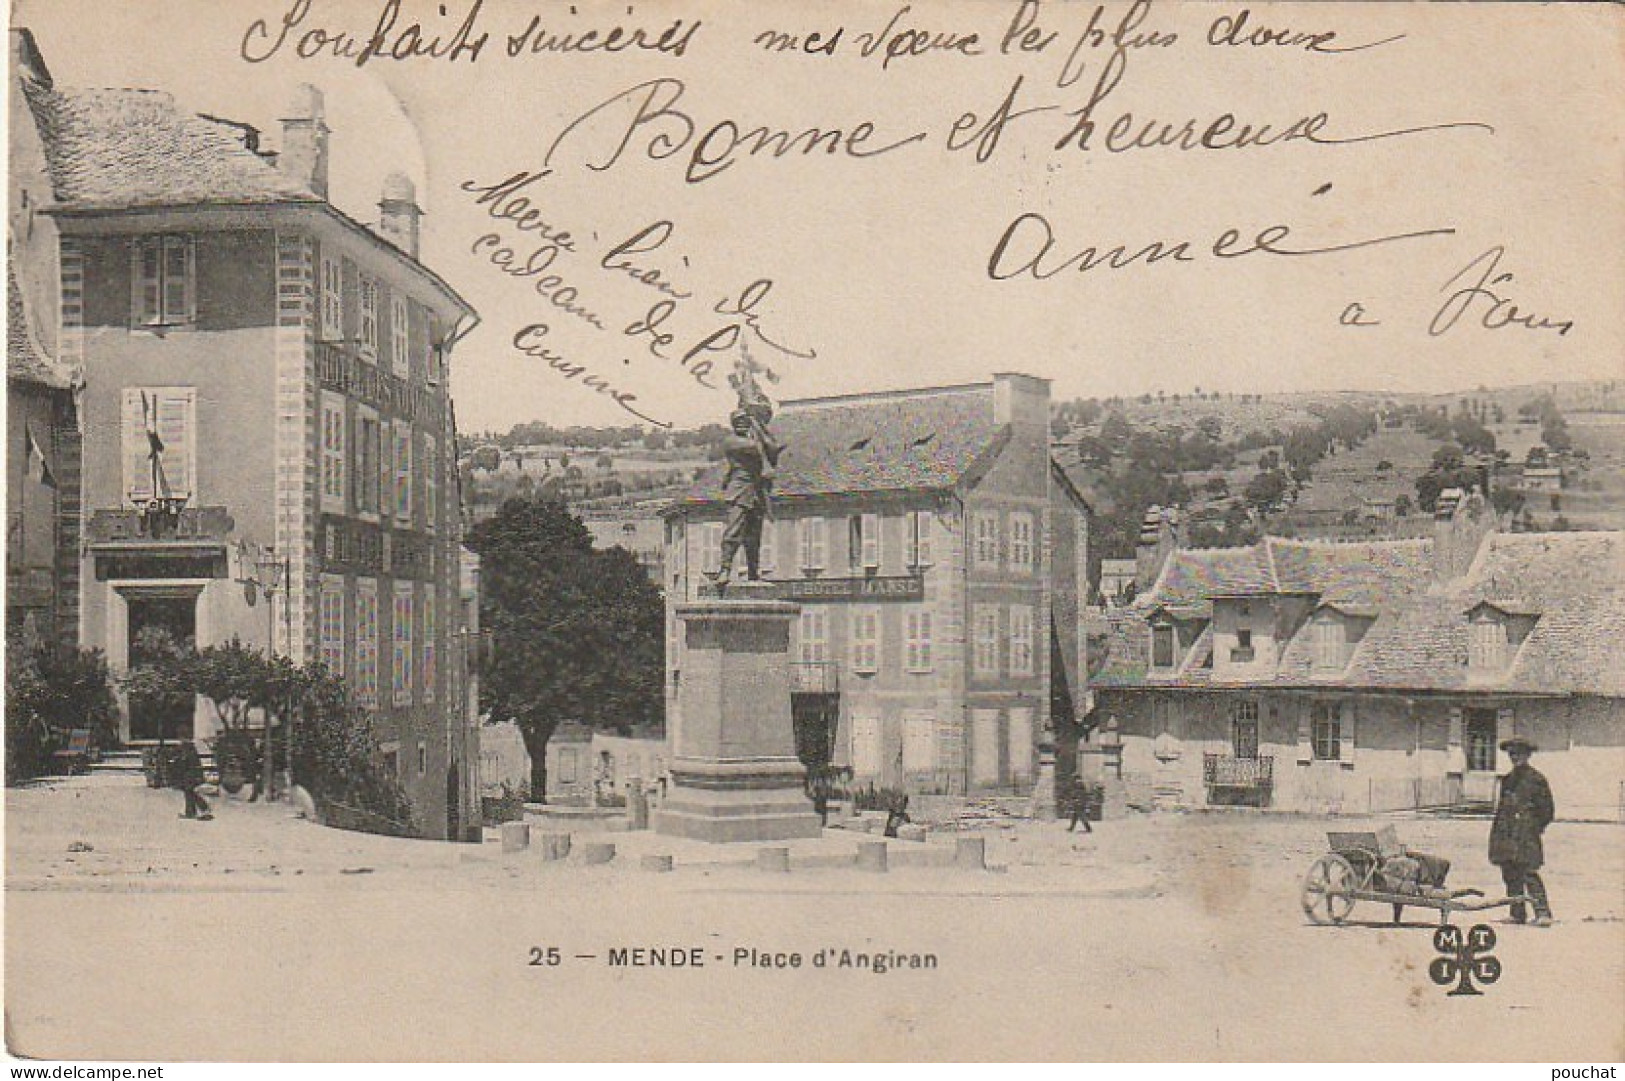 Souhaits sincères mes vœux les plus doux
Bonne et heureuse
Année
a Vous
Merci bien du
cadeau de la
cousine
L'HOTEL MANSE
25 — MENDE - Place d'Angiran
M T
I L
Delcampe.net
pouchat